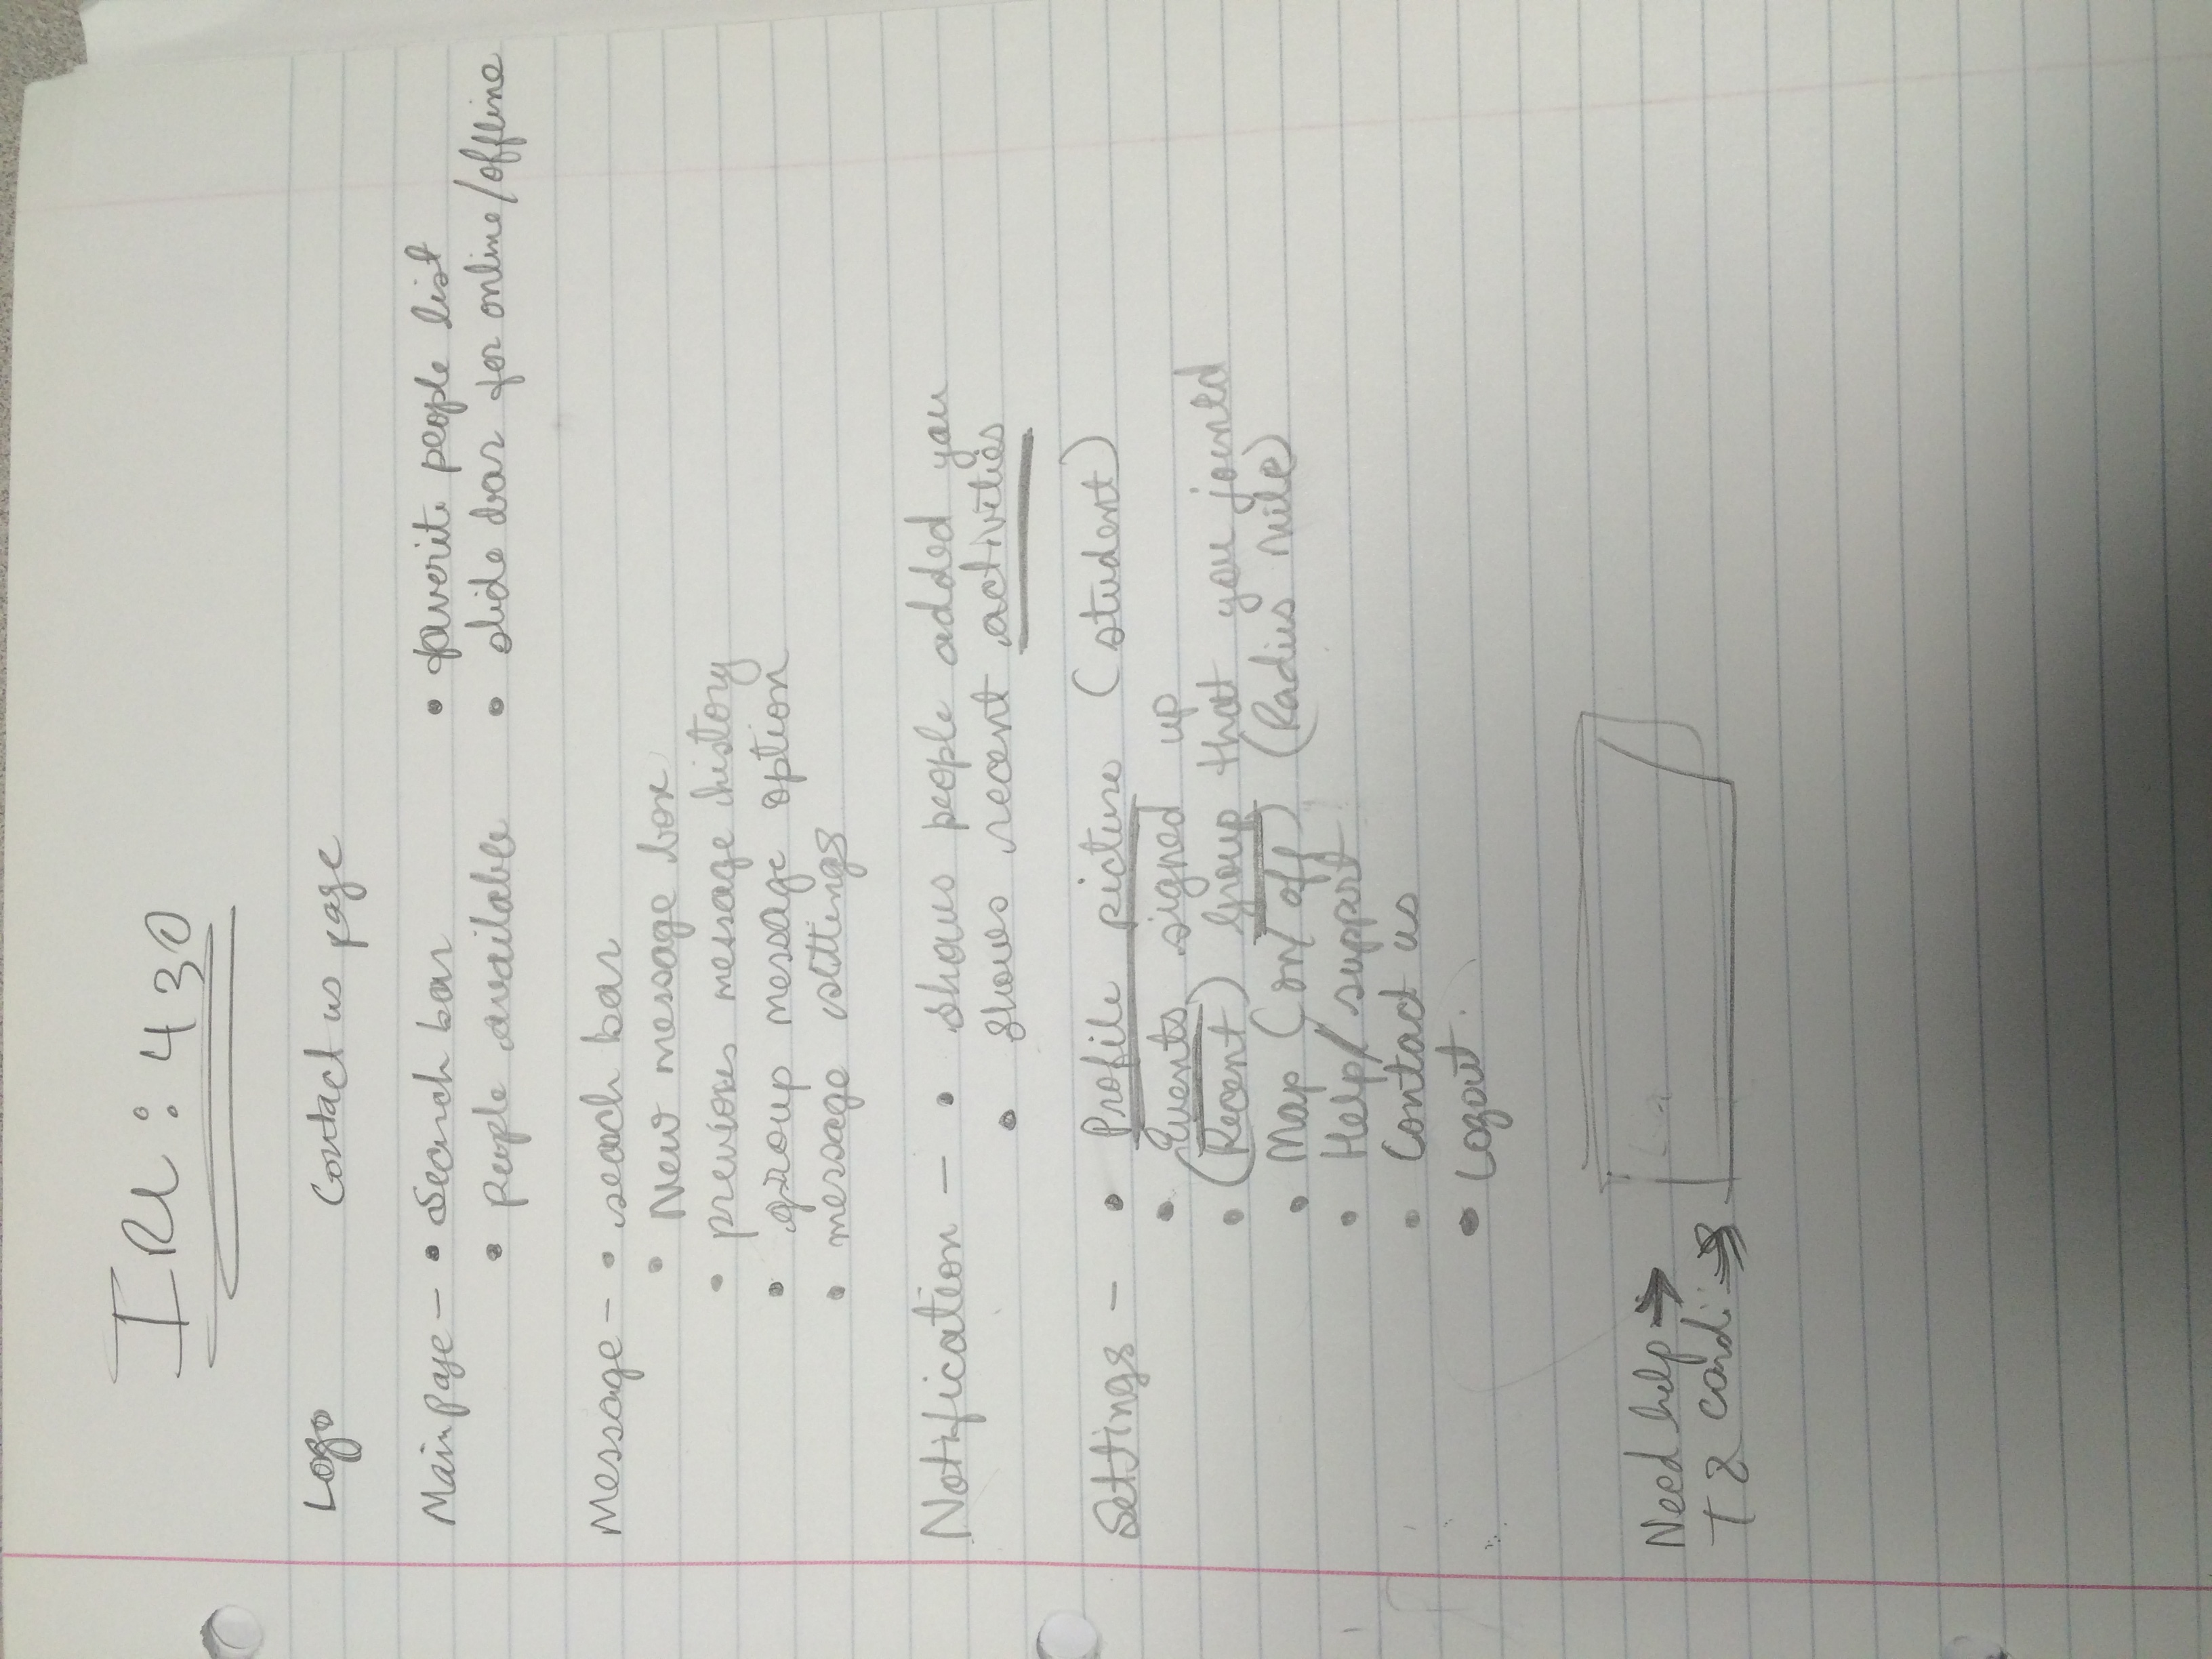 IRL : 430
Logo Contact us page
Main page - • Search bar • favorite people list
• people available • slide bar for online/offline
Message - • seach bar
• New message box
• previous message history
• group message option
• message settings
Notification - • shows people added you
• shows recent activities
Settings - • Profile picture (student)
• Events signed up
• (Recent) Group that you joined
• Map (on/off) (Radius mile)
• Help/support
• Contact us
• Logout.
Need help →
T & cond: →